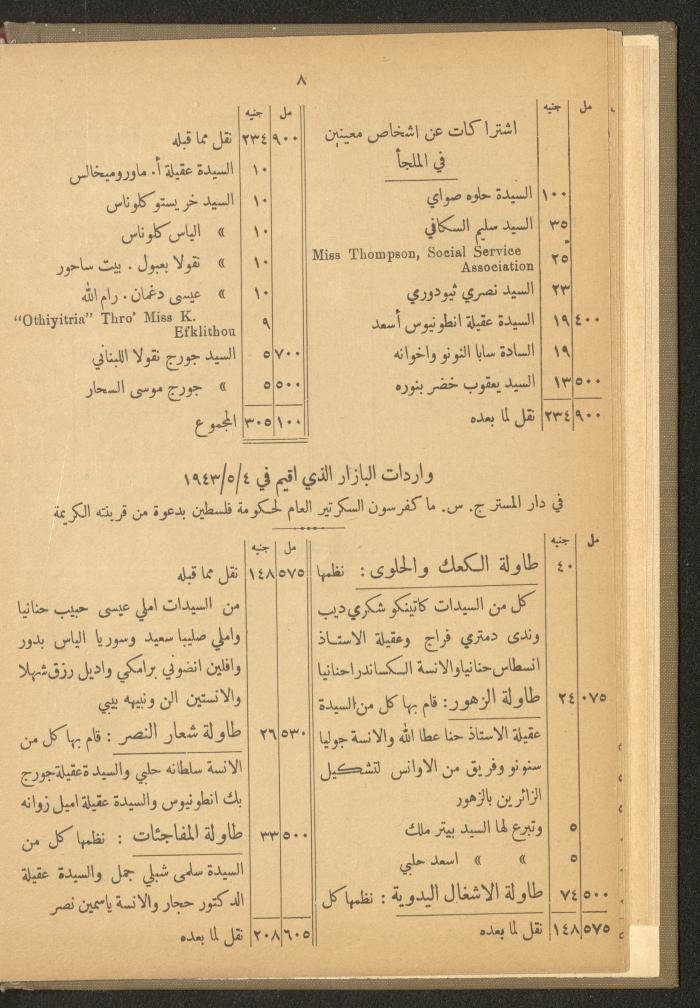 ٨
مل جنيه
اشتراكات عن اشخاص معينين
في الملجأ
١٠٠ السيدة حلوه صواي
٣٥ السيد سليم السكافي
٢٥ Miss Thompson, Social Service
Association
٢٣ السيد نصري ثيودوري
٤٠٠ ١٩ السيدة عقيلة انطونيوس أسعد
١٩ السادة سابا النونو واخوانه
٥٠٠ ١٣ السيد يعقوب خضر بنوره
٩٠٠ ٢٣٤ نقل لما بعده
مل جنيه
٩٠٠ ٢٣٤ نقل مما قبله
١٠ السيدة عقيلة أ. ماوروميخالس
١٠ السيد خريستو كلوناس
١٠ » الياس كلوناس
١٠ » نقولا بعبول . بيت ساحور
١٠ » عيسى دغمان . رام الله
٩ “Othiyitria” Thro’ Miss K.
Efklithou
٧٠٠ ٥ السيد جورج نقولا اللبناني
٥٠٠ ٥ » جورج موسى السحار
١٠٠ ٣٠٥ المجموع
واردات البازار الذي اقيم في ٤/٥/١٩٤٣
في دار المستر ج. س. ماكفرسون السكرتير العام لحكومة فلسطين بدعوة من قرينته الكريمة
مل جنيه
٤٠ طاولة الكعك والحلوى : نظمها
كل من السيدات كاتينكو شكري ديب
وندى دمتري فراج وعقيلة الاستاذ
انسطاس حنانيا والانسة الكساندرا حنانيا
٠٧٥ ٢٤ طاولة الزهور : قام بها كل من السيدة
عقيلة الاستاذ حنا عطا الله والانسة جوليا
سنونو وفريق من الاوانس لتشكيل
الزائرين بالزهور
٥ وتبرع لها السيد بيتر ملك
٥ » » اسعد حلبي
٥٠٠ ٧٤ طاولة الاشغال اليدوية : نظمها كل
٥٧٥ ١٤٨ نقل لما بعده
مل جنيه
٥٧٥ ١٤٨ نقل مما قبله
من السيدات املي عيسى حبيب حنانيا
واملي صليبا سعيد وسوريا الياس بدور
وافلين انضوني برامكي واديل رزق شهلا
والانستين الن ونبيهه بيبي
٥٣٠ ٢٦ طاولة شعار النصر : قام بها كل من
الانسة سلطانه حلبي والسيدة عقيلة جورج
بك انطونيوس والسيدة عقيلة اميل زوانه
٥٠٠ ٣٣ طاولة المفاجئات : نظمها كل من
السيدة سلمى شبلي جمل والسيدة عقيلة
الدكتور حجار والانسة ياسمين نصر
٦٠٥ ٢٠٨ نقل لما بعده